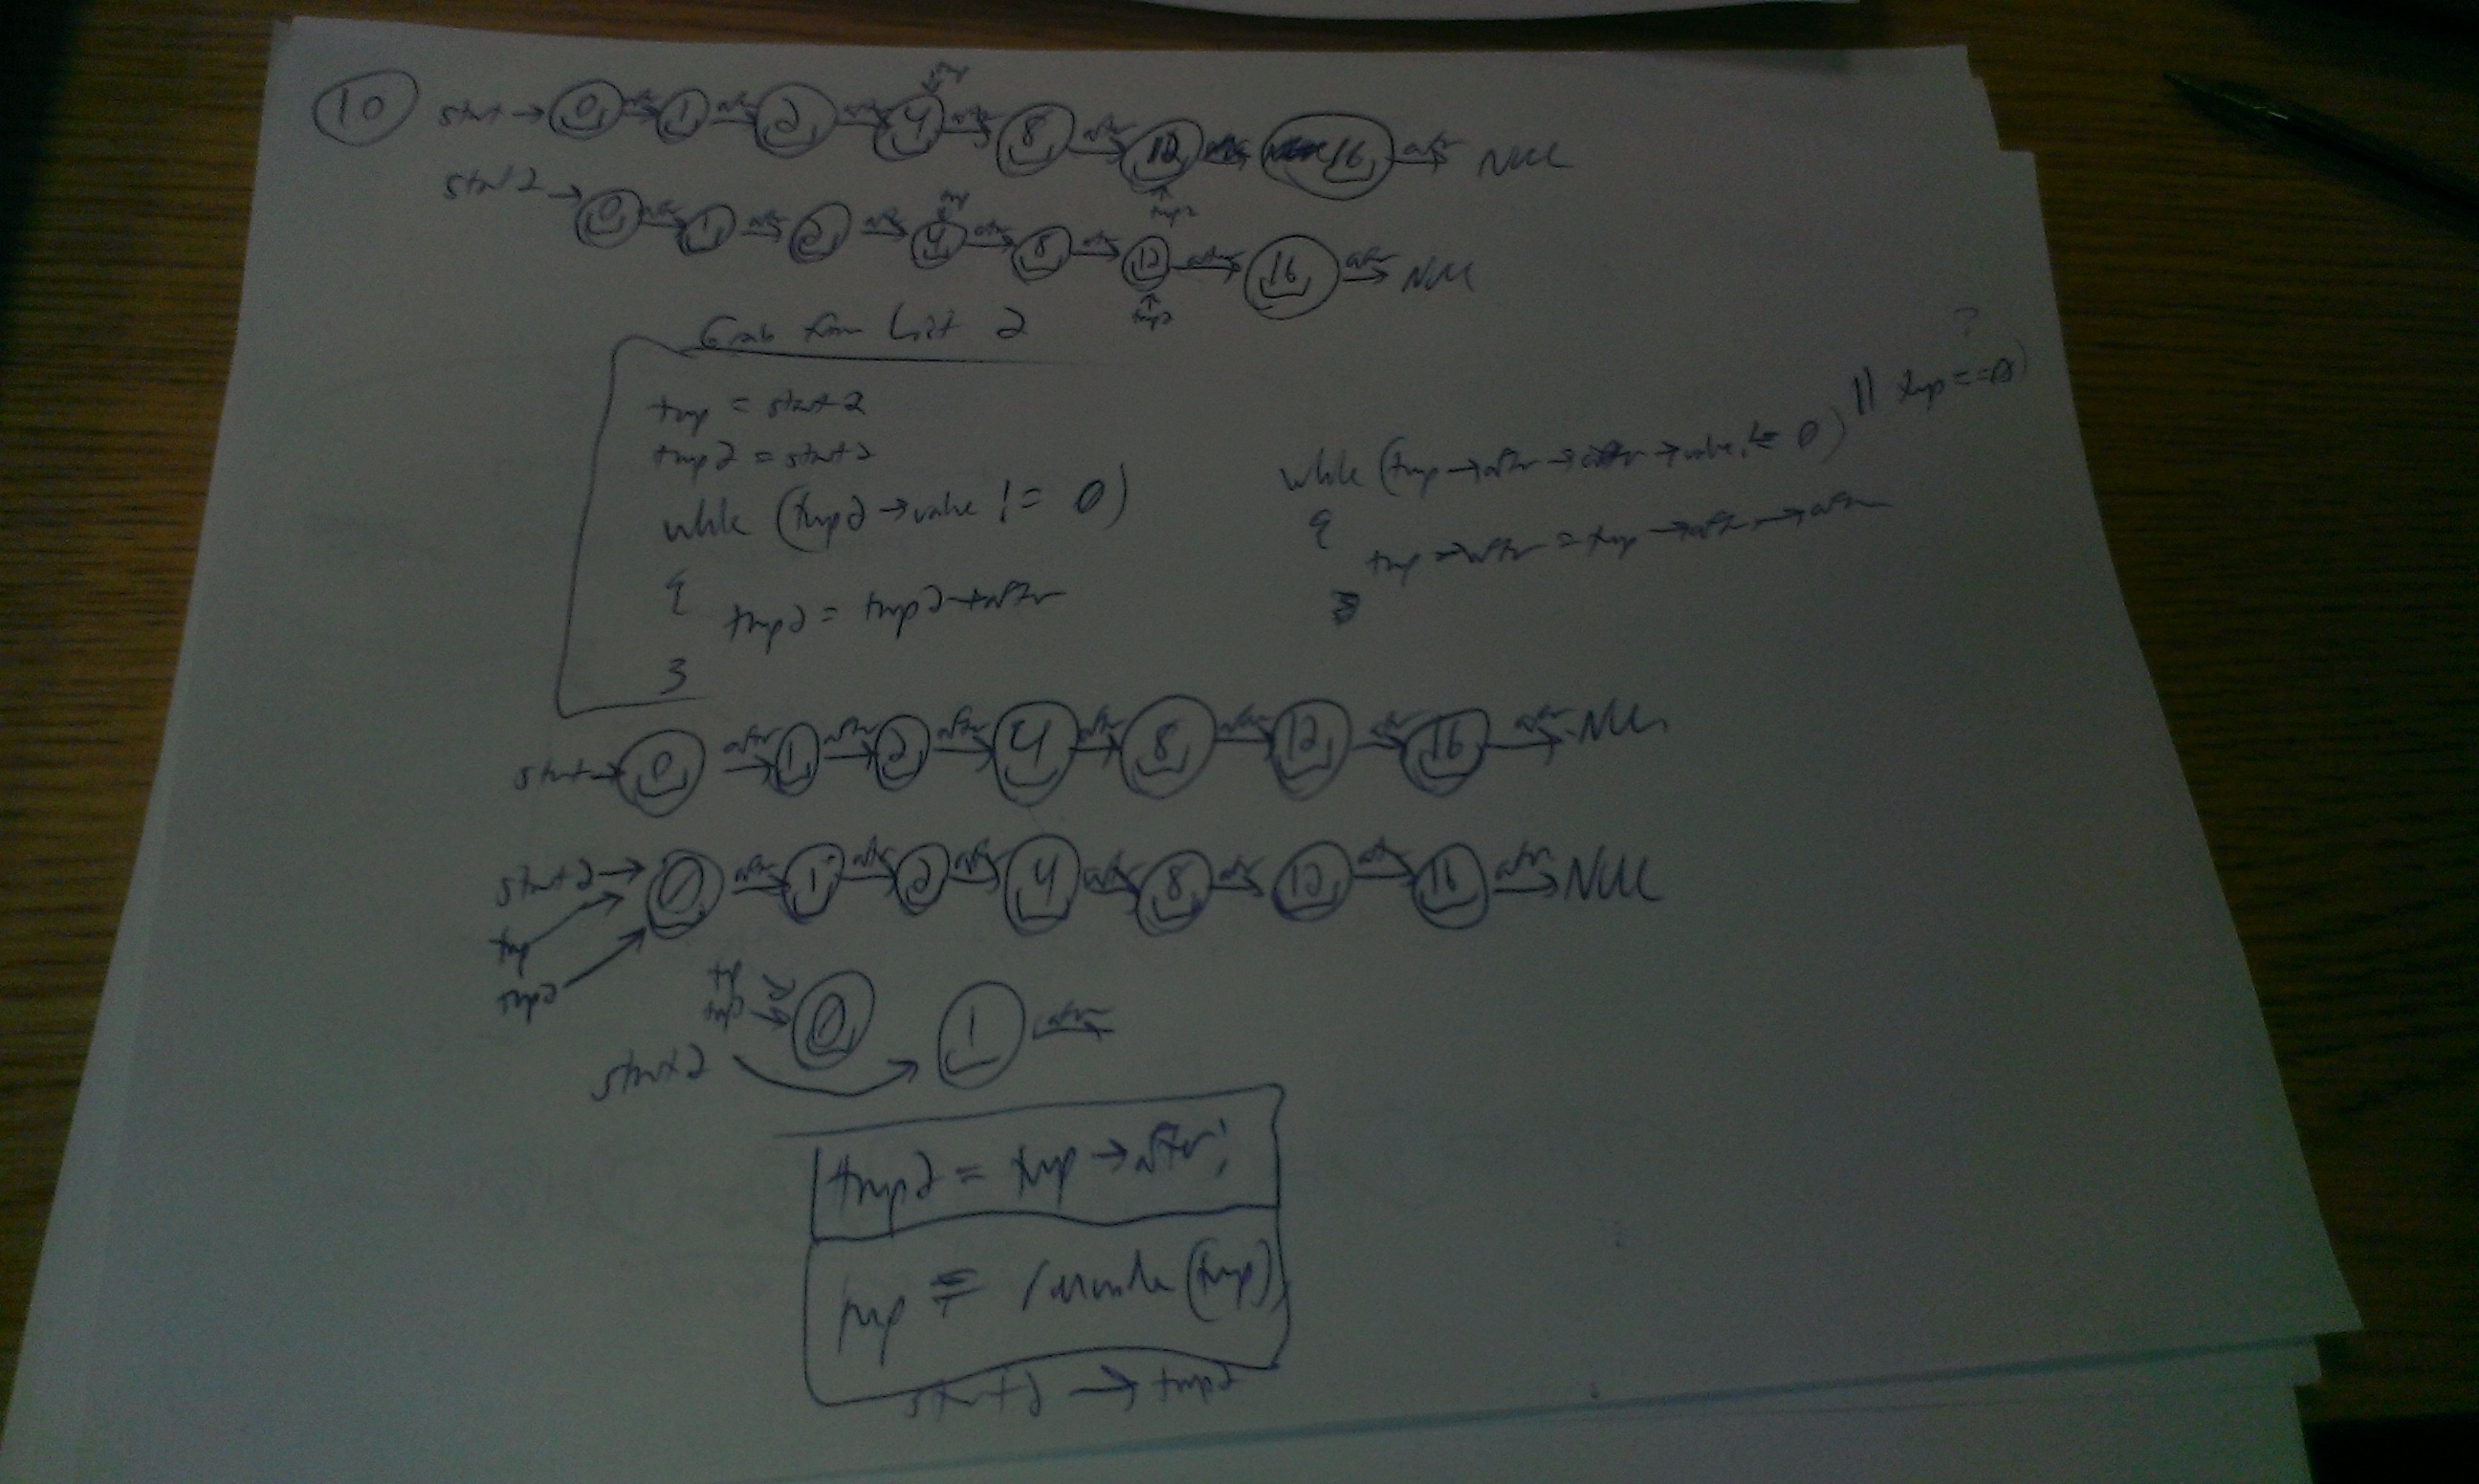 10 start → 0 after → 1 after → 2 after → 4 after → 8 after → 12 → 16 after → NULL
tmp
start2 → 0 after → 1 after → 2 after → 4 after → 8 after → 12 after → 16 after → NULL
tmp
tmp2
tmp2
Grab from List 2
tmp = start2
tmp2 = start2
while (tmp2 → value != 0)
{
tmp2 = tmp2 → after
}
?
while (tmp → after → after → value != 0) || tmp == 0)
{
tmp → after = tmp → after → after
}
start → 0 after → 1 after → 2 after → 4 after → 8 after → 12 after → 16 after → NULL
start2 → 0 after → 1 after → 2 after → 4 after → 8 after → 12 after → 16 after → NULL
tmp
tmp2
tmp → 0 1 after →
tmp2 →
start2
tmp2 = tmp → after;
tmp = (tmp)
start2 → tmp2